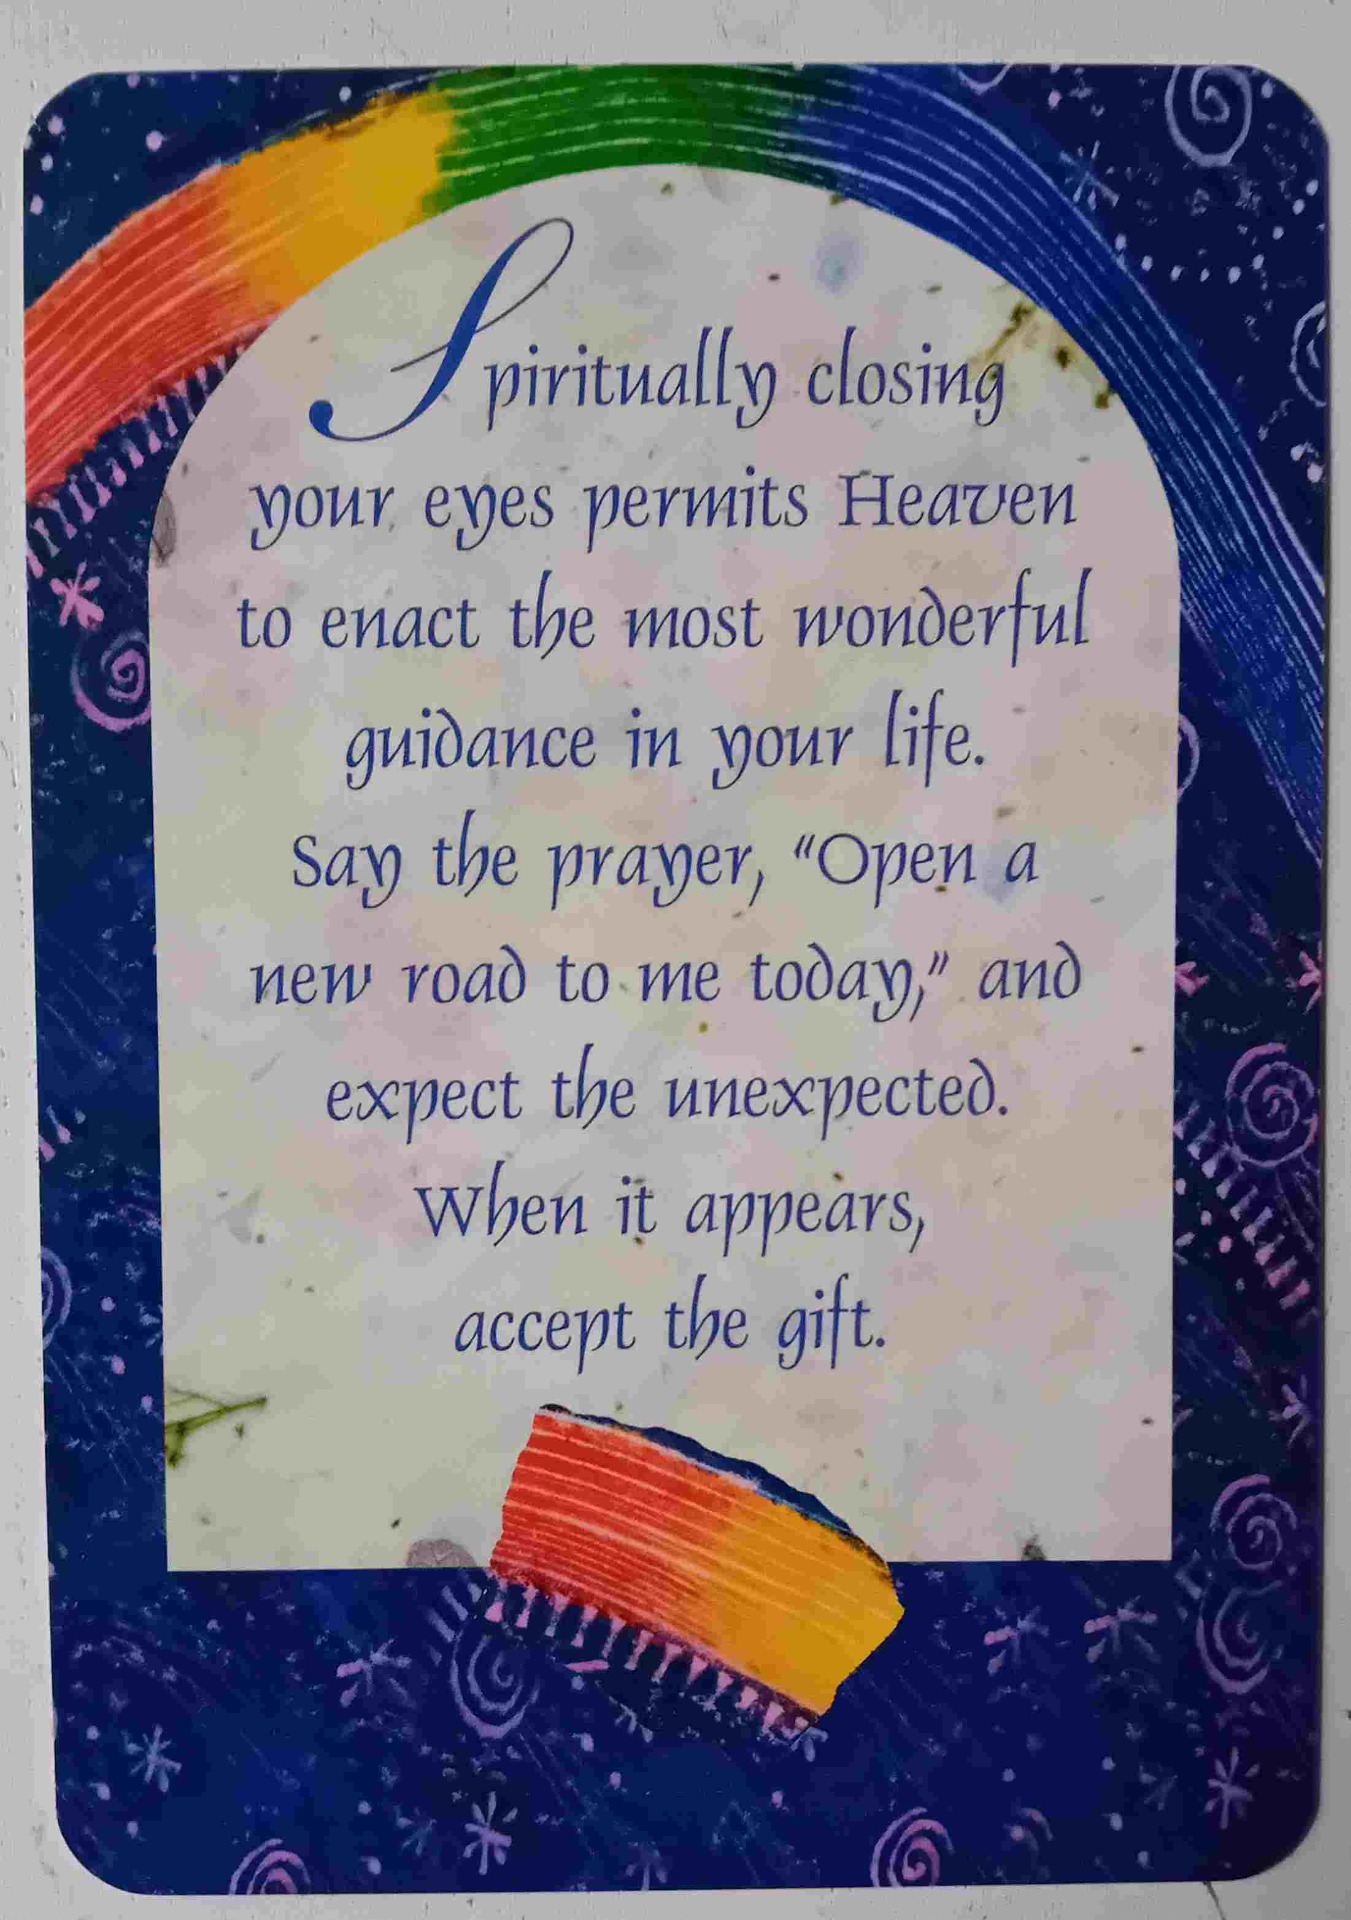 Spiritually closing
your eyes permits Heaven
to enact the most wonderful
guidance in your life.
Say the prayer, “Open a
new road to me today,” and
expect the unexpected.
When it appears,
accept the gift.